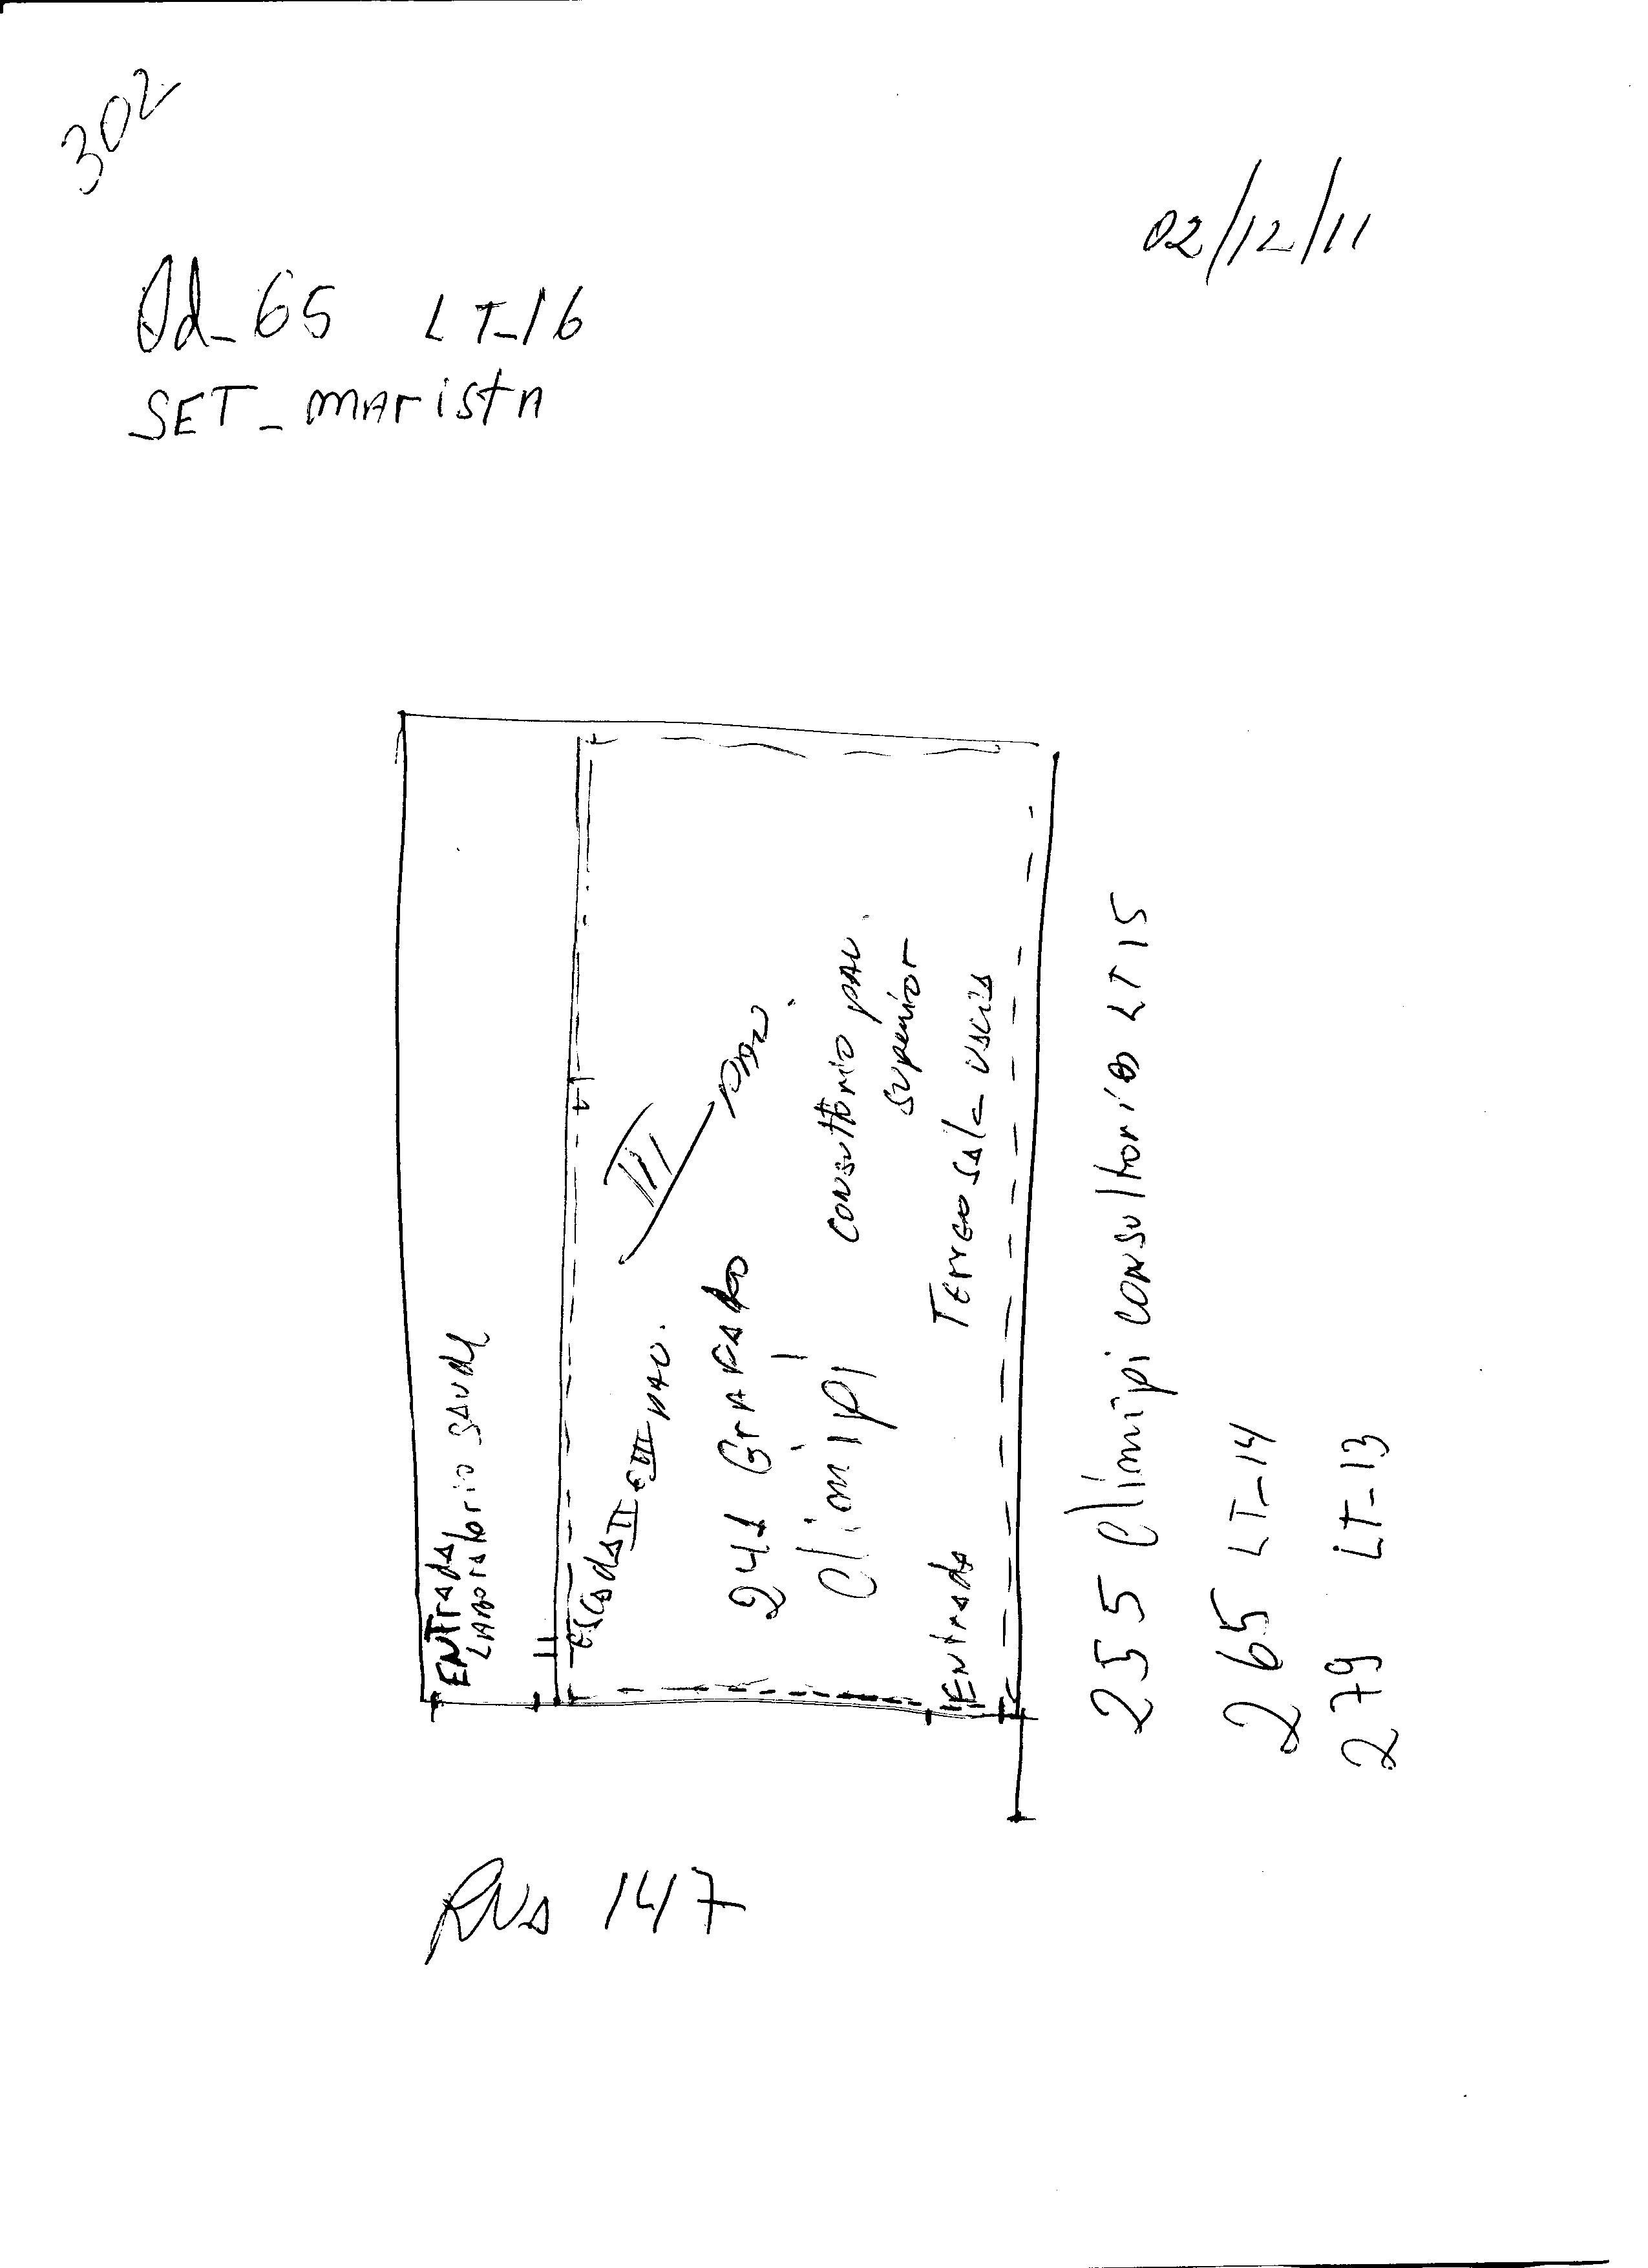 302
02/12/11
Qd_65 LT_16
SET_mAristA
ENTrAdA
LABorAtorio SAude
escAdA II e III PAV.
III PAV.
241 GrAFAdo
Climipi
consultorio PAV.
superior
Terreo sAlA vAciA
EntrAdA
255 Climipi consultorios LT 15
265 LT_14
279 LT_13
RUA 147